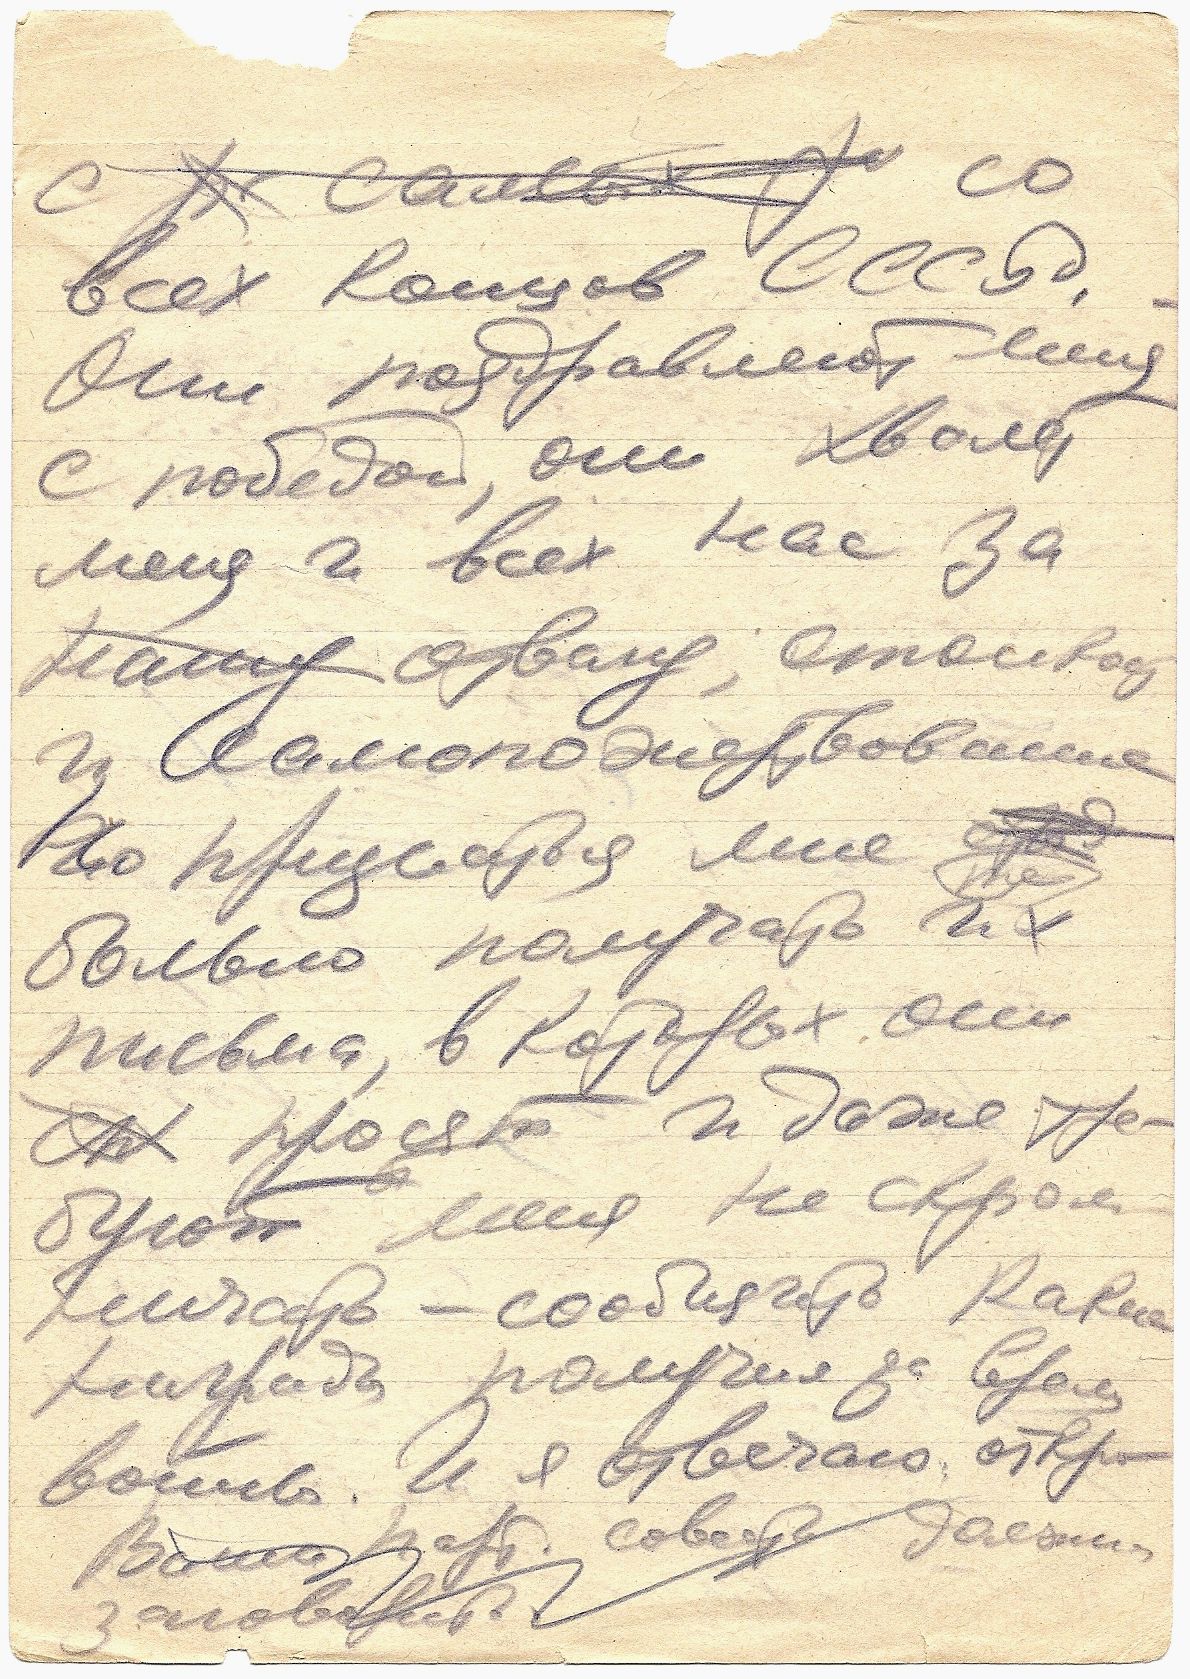 с их самых со
всех концов СССР.
Они поздравляют меня
с победой, они хвалят
меня и всех нас за
нашу отвагу, стойкость
и самопожертвование
Но признаться мне
больно получать их
письма, в которых они
просят и даже тре-
буют меня не скром-
ничать - сообщить какие
награды получил за время
войны. И я отвечаю. откро-
Ваша парт. совесть должна
заговорить.